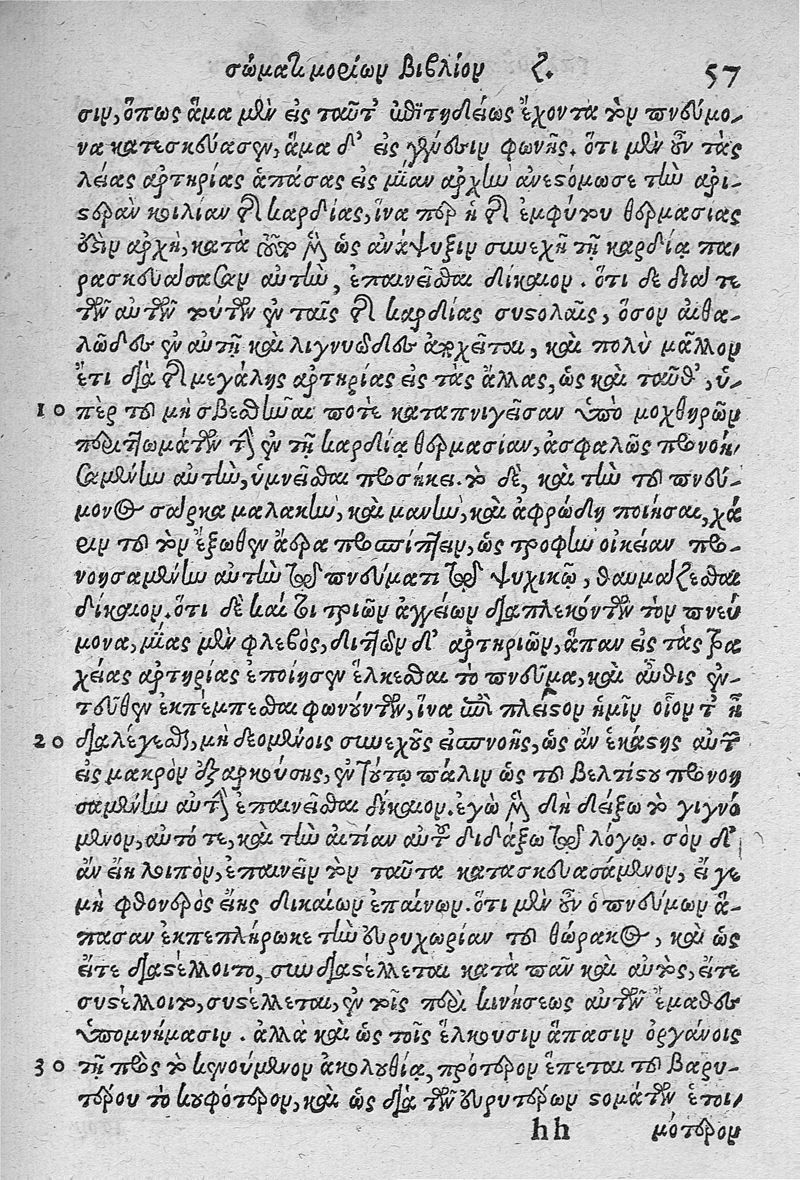 σώματ μορίων βιβλίον ζ. 57
σιν, ὅπως ἅμα μὲν εἰς ταῦτ' ἐπιτηδείως ἔχοντα τὸν πνεύμο-
να κατεσκεύασεν, ἅμα δ' εἰς γένεσιν φωνῆς. ὅτι μὲν οὖν τὰς
λείας ἀρτηρίας ἁπάσας εἰς μίαν ἀρχὴν ἀνεστόμωσε τὴν ἀρι-
στερὰν κοιλίαν τῆς καρδίας, ἵνα περ ἡ τῆς ἐμφύτου θερμασίας
ἐστὶν ἀρχὴ, κατὰ τοῦτο μὲν ὡς ἀνάψυξιν συνεχῆ τῇ καρδίᾳ πα-
ρασκευάσασαν αὐτὴν, ἐπαινεῖσθαι δίκαιον. ὅτι δὲ διά τε
τῶν αὐτῶν τούτων ἐν ταῖς τῆς καρδίας συστολαῖς, ὅσον αἰθα-
λῶδες ἐν αὐτῇ καὶ λιγνυῶδες ἀπχεῖται, καὶ πολὺ μᾶλλον
ἔτι διὰ τῆς μεγάλης ἀρτηρίας εἰς τὰς ἄλλας, ὡς καὶ ταῦθ', ὑ-
10 πὲρ τοῦ μὴ σβεσθῆναί ποτε καταπνιγεῖσαν ὑπὸ μοχθηρῶν
περιττωμάτων τὴν ἐν τῇ καρδίᾳ θερμασίαν, ἀσφαλῶς προνοη-
σαμένην αὐτὴν, ὑμνεῖσθαι προσήκει. τὸ δὲ, καὶ τὴν τοῦ πνεύ-
μονος σάρκα μαλακὴν, καὶ μανὴν, καὶ ἀφρώδη ποιῆσαι, χά
ριν τοῦ τὸν ἔξωθεν ἀέρα προπέττειν, ὡς τροφὴν οἰκείαν προ-
νοησαμένην αὐτὴν τῷ πνεύματι τῷ ψυχικῷ, θαυμάζεσθαι
δίκαιον. ὅτι δὲ καί τοι τριῶν ἀγγείων διαπλεκόντων τὸν πνεύ
μονα, μίας μὲν φλεβὸς, διττῶν δ' ἀρτηριῶν, ἅπαν εἰς τὰς τρα
χείας ἀρτηρίας ἐποίησεν ἕλκεσθαι τὸ πνεῦμα, καὶ αὖθις ἐν-
τεῦθεν ἐκπέμπεσθαι φωνούντων, ἵνα ἐπὶ πλεῖστον ἡμῖν οἷόν τ' ᾖ
20 διαλέγεσθαι, μὴ δεομένοις συνεχοῦς εἰσπνοῆς, ὡς ἂν ἑκάστης αὐτῶν
εἰς μακρὸν ἐξαρκούσης, ἐν τούτῳ πάλιν ὡς τοῦ βελτίστου προνοη
σαμένην αὐτὴν ἐπαινεῖσθαι δίκαιον. ἐγὼ μὲν δὴ δείξω τὸ γιγνό
μενον, αὐτό τε, καὶ τὴν αἰτίαν αὐτοῦ διδάξω τῷ λόγῳ. σὸν δ'
ἂν εἴη λοιπὸν, ἐπαινεῖν τὸν ταῦτα κατασκευασάμενον, εἴ γε
μὴ φθονερὸς εἴης δικαίων ἐπαίνων. ὅτι μὲν οὖν ὁ πνεύμων ἅ-
πασαν ἐκπεπλήρωκε τὴν εὐρυχωρίαν τοῦ θώρακος, καὶ ὡς
εἴτε διαστέλλοιτο, συνδιαστέλλεται κατὰ πᾶν καὶ αὐτὸς, εἴτε
συστέλλοιτο, συστέλλεται, ἐν τοῖς περὶ κινήσεως αὐτῶν ἔμαθες
ὑπομνήμασιν. ἀλλὰ καὶ ὡς τοῖς ἕλκουσιν ἅπασιν ὀργάνοις
30 τῇ πρὸς τὸ κενούμενον ἀκολουθίᾳ, πρότερον ἕπεται τοῦ βαρυ-
τέρου τὸ κουφότερον, καὶ ὡς διὰ τῶν εὐρυτέρων στομάτων ἑτοι-
hh μότερον